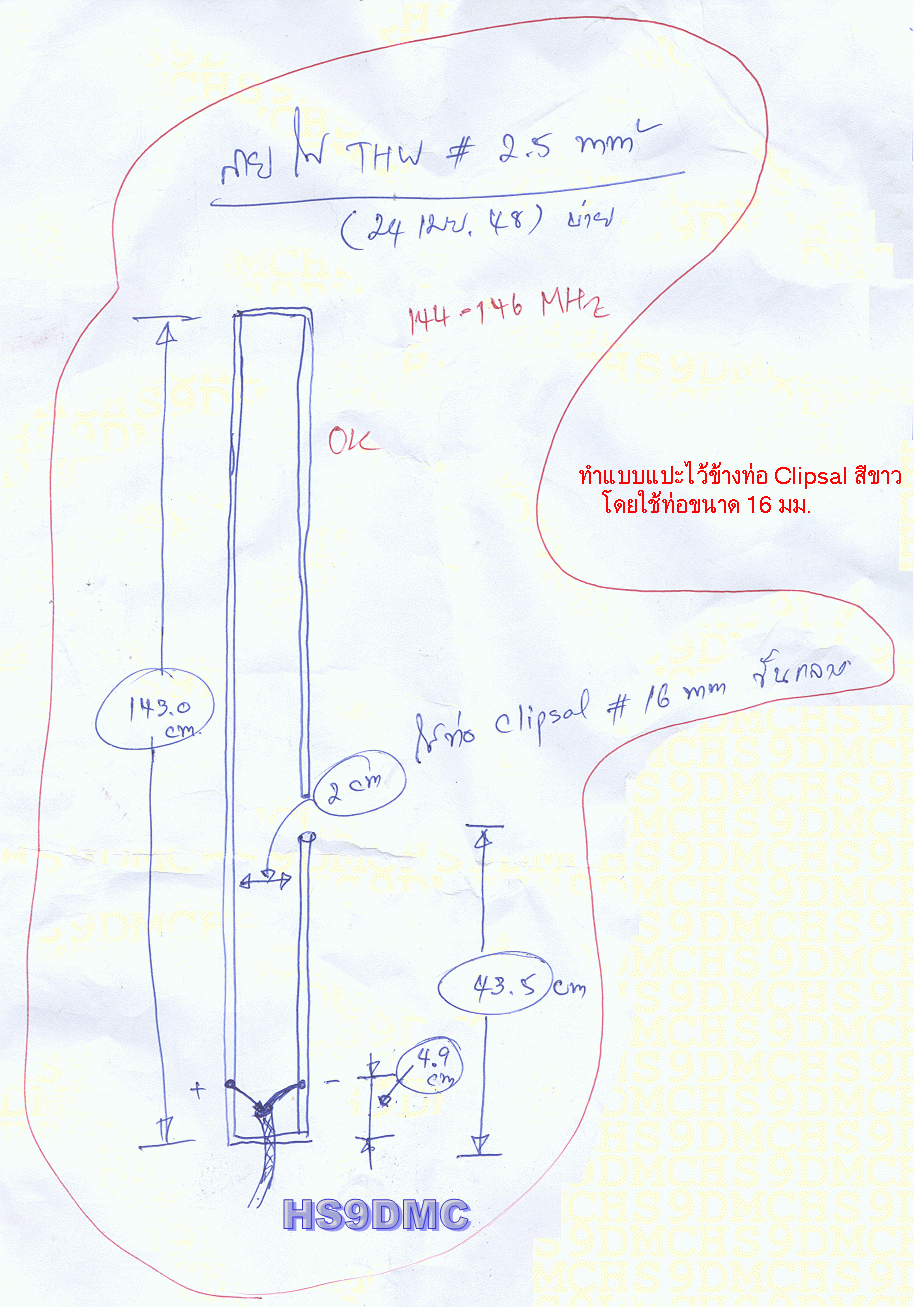 สายไฟ THW # 2.5 mm²
(24 เมย. 48) บ่าย
144-146 MHz
OK
ทำแบบแปะไว้ข้างท่อ Clipsal สีขาว
โดยใช้ท่อขนาด 16 มม.
143.0
cm.
ใช้ท่อ Clipsal # 16 mm
2 cm
43.5 cm
4.9
cm
+
-
HS9DMC